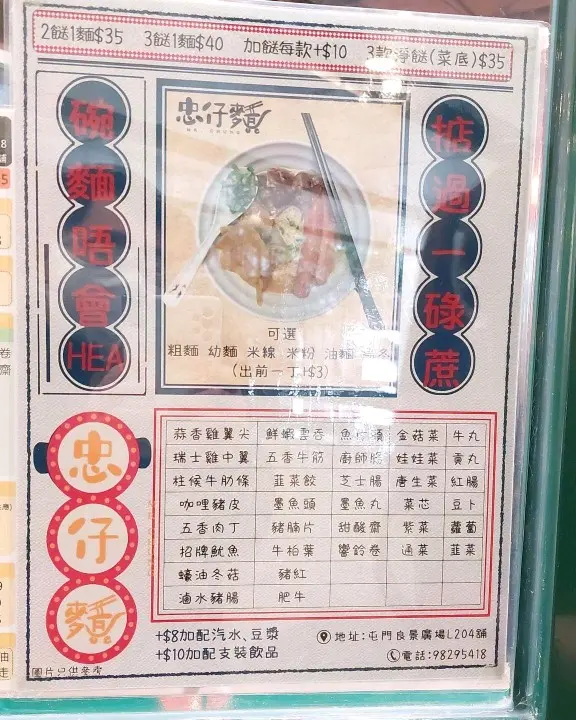 2餸1麵$35 3餸1麵$40 加餸每款+$10 3款淨餸(菜底)$35
碗麵唔會HEA
忠仔麵
MR. CHUNG
掂過一碌蔗
可選
粗麵 幼麵 米線 米粉 油麵
(出前一丁+$3)
忠仔麵
蒜香雞翼尖 鮮蝦雲吞 金菇菜 牛丸
瑞士雞中翼 五香牛筋 廚師腸 娃娃菜 貢丸
柱侯牛肋條 韮菜餃 芝士腸 唐生菜 紅腸
咖哩豬皮 墨魚頭 墨魚丸 菜芯 豆卜
五香肉丁 豬腩片 甜酸齋 紫菜 蘿蔔
招牌魷魚 牛柏葉 響鈴卷 通菜 韮菜
蠔油冬菇 豬紅
滷水豬腸 肥牛
+$8加配汽水、豆漿
+$10加配支裝飲品
地址:屯門良景廣場L204舖
電話:98295418
圖片只供參考